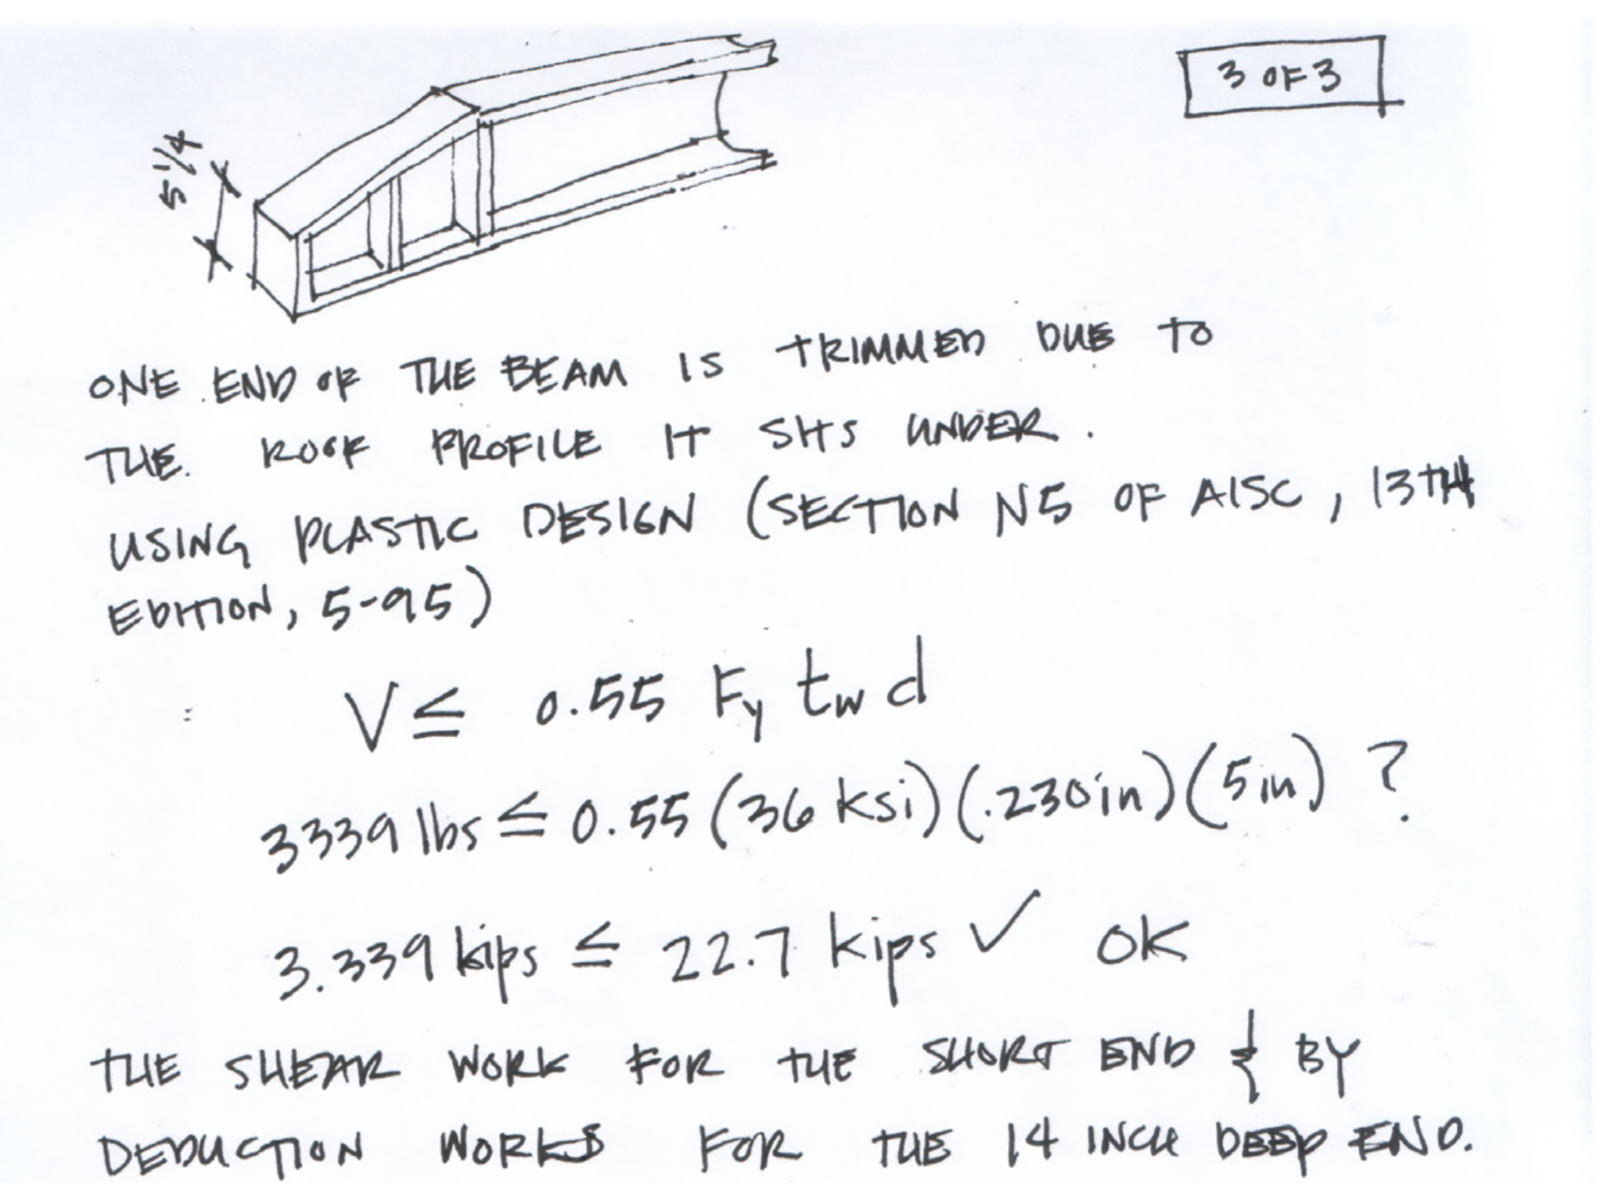 3 OF 3
5 1/4
ONE END OF THE BEAM IS TRIMMED DUE TO
THE ROOF PROFILE IT SITS UNDER.
USING PLASTIC DESIGN (SECTION N5 OF AISC, 13TH
EDITION, 5-95)
V ≤ 0.55 Fy tw d
3339 lbs ≤ 0.55 (36 ksi)(.230in)(5in) ?
3.339 kips ≤ 22.7 kips ✓ OK
THE SHEAR WORK FOR THE SHORT END & BY
DEDUCTION WORKS FOR THE 14 INCH DEEP END.